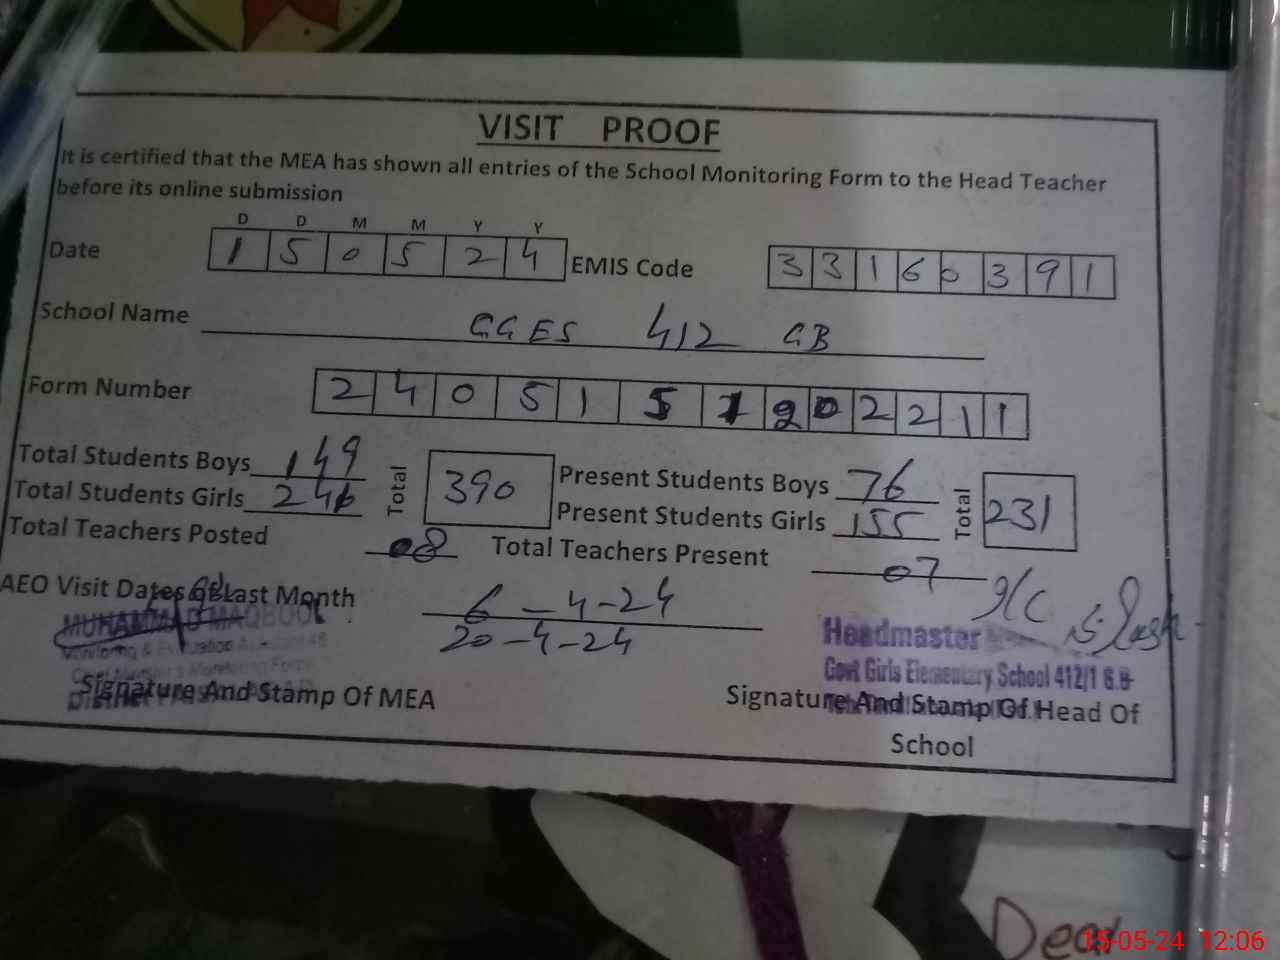 VISIT PROOF
It is certified that the MEA has shown all entries of the School Monitoring Form to the Head Teacher
before its online submission
D D M M Y Y
Date 1 5 0 5 2 4 EMIS Code 3 3 1 6 0 3 9 1
School Name GGES 412 GB
Form Number 2 4 0 5 1 5 1 2 0 2 2 1 1
Total Students Boys 149 Total 390 Present Students Boys 76 Total 231
Total Students Girls 246 Present Students Girls 155
Total Teachers Posted 08 Total Teachers Present 07
AEO Visit Dates Of Last Month 6-4-24
20-4-24
MUHAMMAD MAQBOOL
Monitoring & Evaluation
District
Signature And Stamp Of MEA
I/C
Headmaster
Govt Girls Elementary School 412/1 G.B
Signature And Stamp Of Head Of
School
Dear
15-05-24 12:06